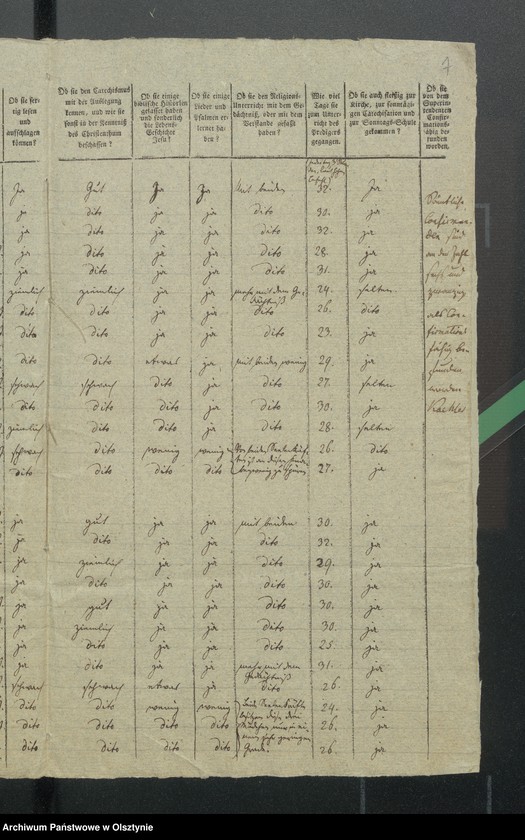 7
Ob sie fer-
tig lesen
und
aufschlagen
können?
Ob sie den Catechismus
mit der Auslegung
kennen, und wie sie
sonst in der Kenntniß
des Christenthum
beschaffen?
Ob sie einige
biblische Historien
gefasset haben
und sonderlich
die Lebens-
Geschichte
Jesu?
Ob sie einige
Lieder und
Psalmen er-
lernet ha-
ben?
Ob sie den Religions-
Unterricht mit dem Ge-
dächtniß, oder mit dem
Verstande gefaßt
haben?
Wie viel
Tage sie
zum Unter-
richt des
Predigers
gegangen.
Ob sie auch fleißig zur
Kirche, zur sonntägi-
gen Catechisation und
zur Sonntags-Schule
gekommen?
Ob sie
von dem
Superin-
tendenten
Confir-
mations-
fähig be-
funden
worden.
Ja Gut Ja Ja Mit beiden 32. Ja
ja dito ja ja dito 30. ja
ja dito ja ja dito 32. ja
ja dito ja ja dito 28. ja
ja dito ja ja dito 31. ja
ziemlich ziemlich ja ja mehr mit dem Ge-
dächtniß 24. selten
dito dito ja ja dito 26. dito
dito dito ja ja dito 23. ja
dito dito etwas ja mit beiden wenig 29. ja
schwach schwach dito ja dito 27. selten
dito dito dito ja dito 30. ja
ziemlich dito dito ja dito 28. selten
schwach dito wenig wenig 26. dito
dito dito dito dito 27. ja
ja gut ja ja mit beiden 30. ja
ja dito ja ja dito 32. ja
ja ziemlich ja ja dito 29. ja
ja dito ja ja dito 30. ja
ja gut ja ja dito 30. ja
ja ziemlich ja ja dito 30. ja
ja dito ja ja dito 25. ja
ja dito ja ja mehr mit dem
Gedächtniß 31. ja
schwach schwach etwas ja dito 26. ja
dito dito wenig wenig 24. ja
dito dito dito dito 26. ja
dito dito dito dito 26. ja
Sämtliche
Confirman-
den sind
an der Zahl
sechs und
zwanzig
als Con-
firmations
fähig be-
funden
worden
Archiwum Państwowe w Olsztynie